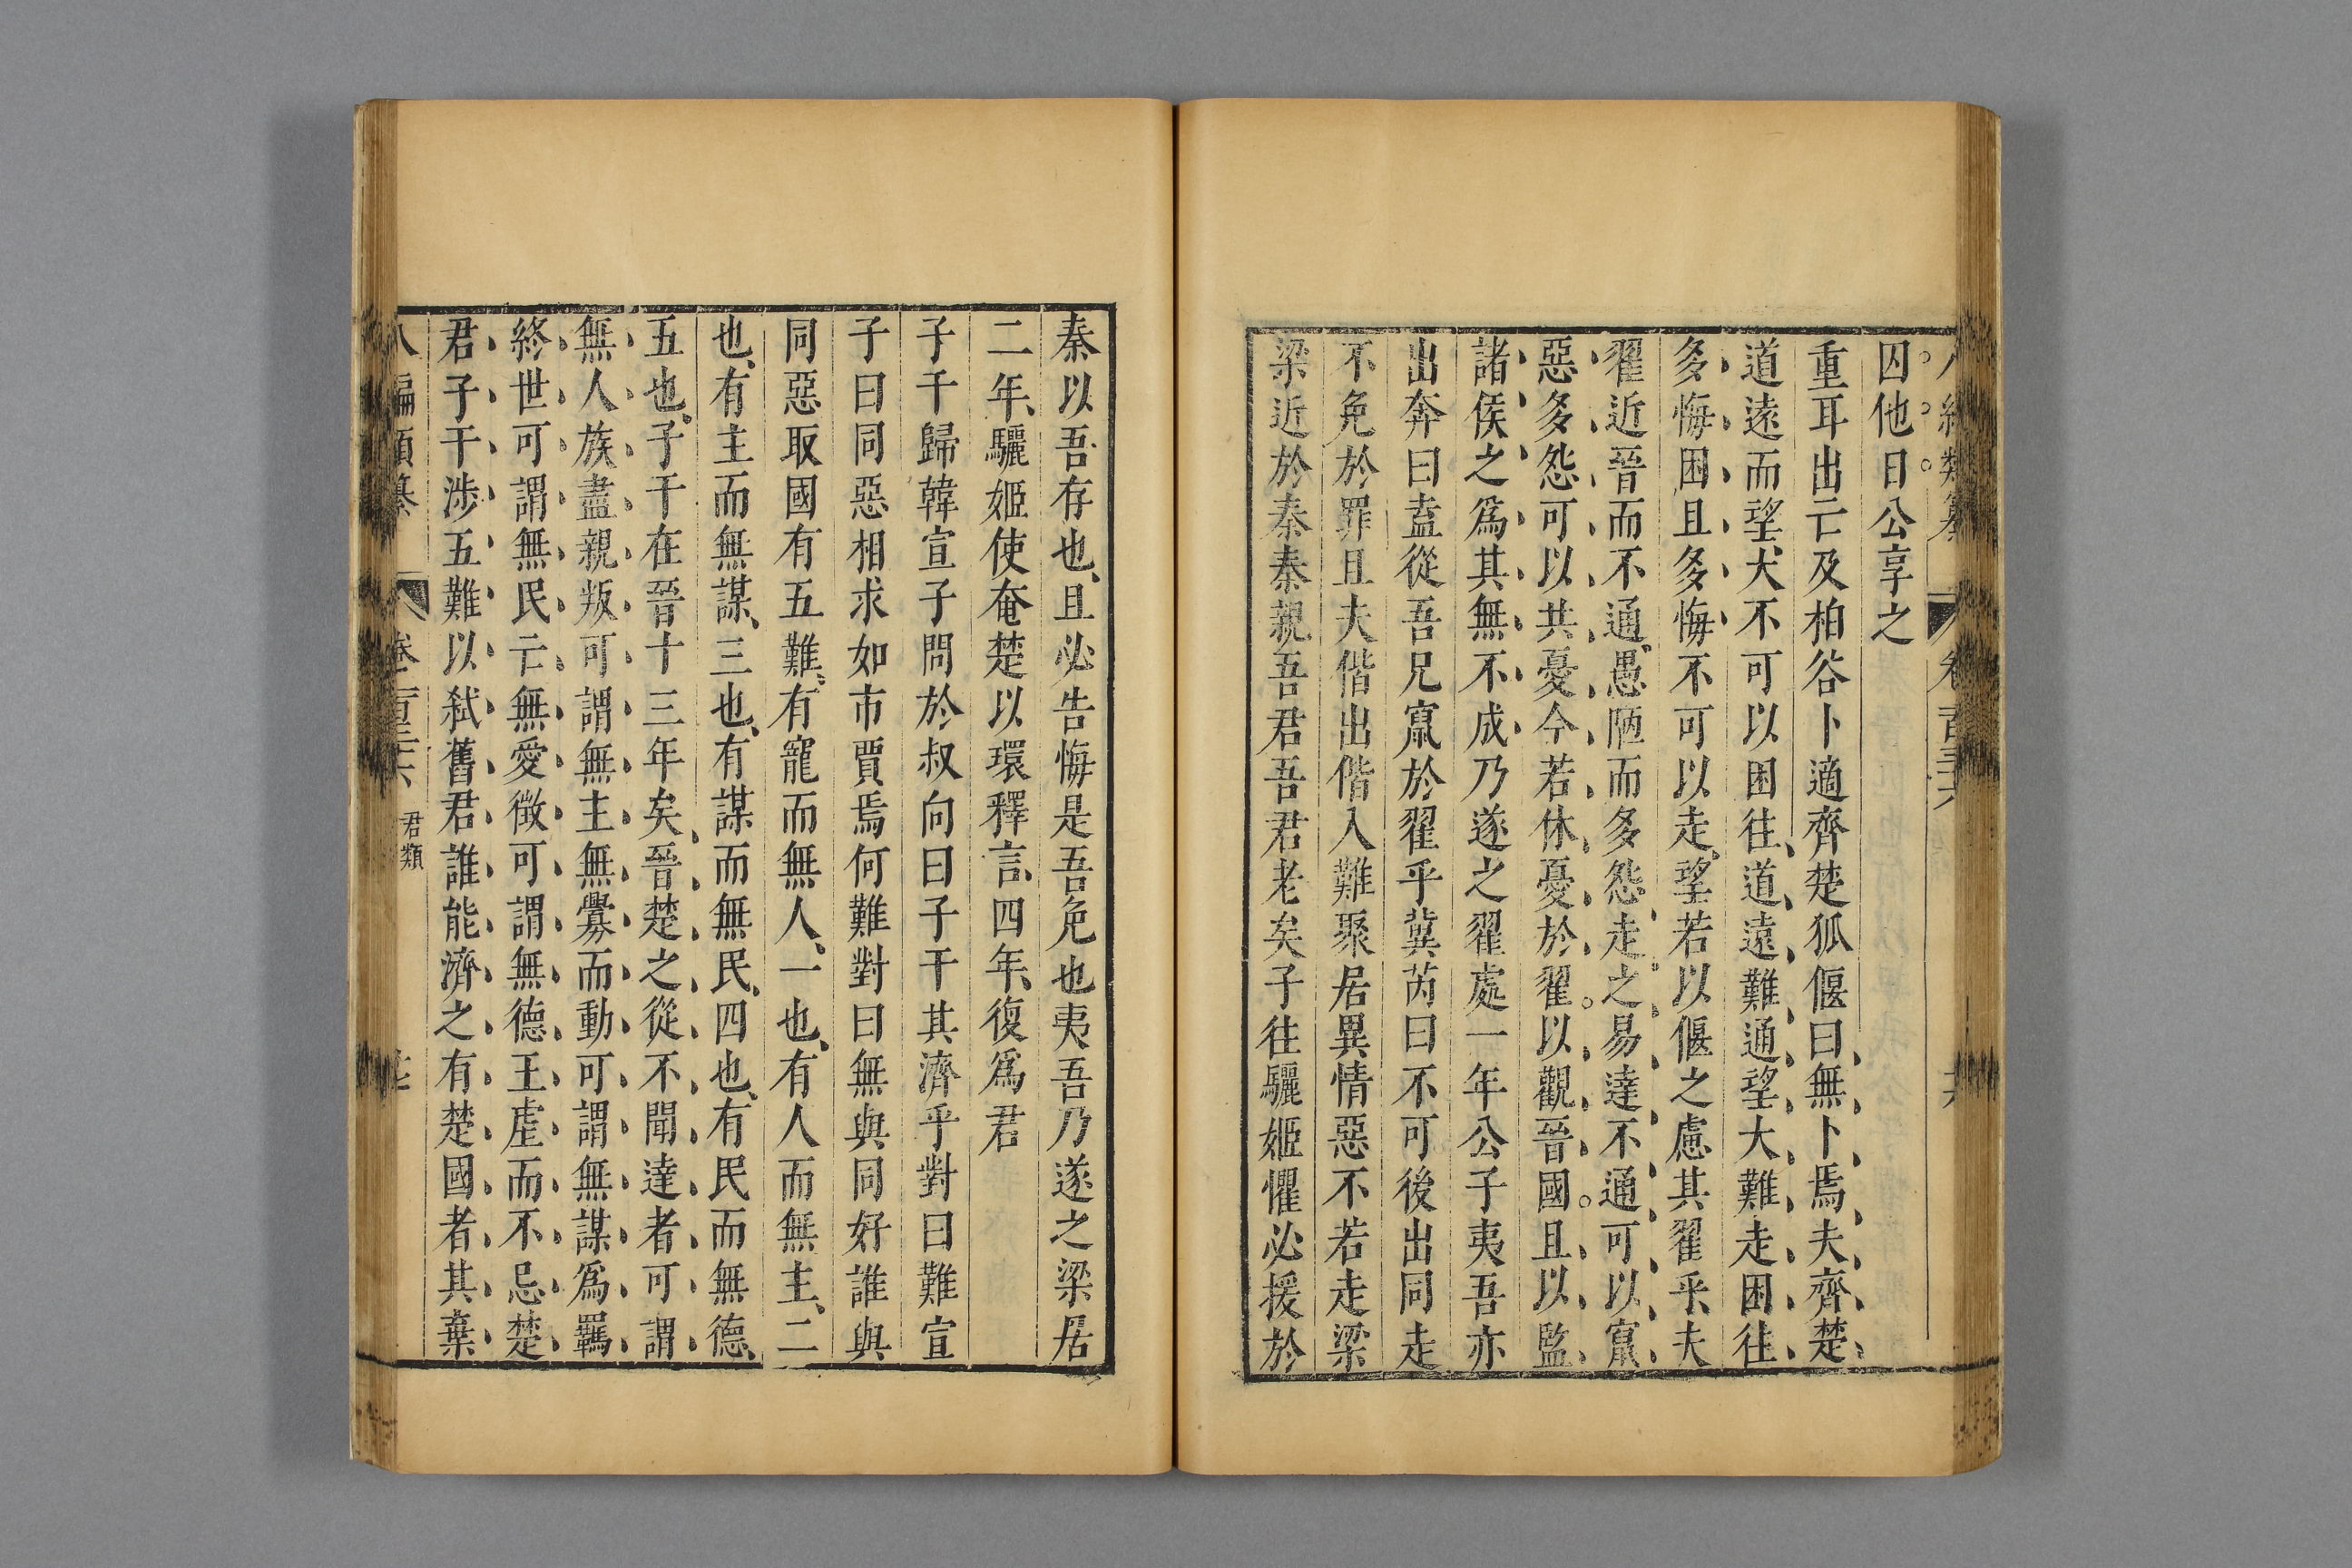 囚他日公享之
重耳出亡及柏谷卜適齊楚狐偃曰無卜焉夫齊楚
道遠而望大不可以困往道遠難通望大難走困往
多悔困且多悔不可以走望若以偃之慮其翟乎夫
翟近晉而不通愚陋而多怨走之易達不通可以竄
惡多怨可以共憂今若休憂於翟以觀晉國且以監
諸侯之爲其無不成乃遂之翟處一年公子夷吾亦
出奔曰盍從吾兄竄於翟乎冀芮曰不可後出同走
不免於罪且夫偕出偕入難聚居異情惡不若走梁
梁近於秦秦親吾君吾君老矣子往驪姬懼必援於
秦以吾存也且必告悔是吾免也夷吾乃遂之梁居
二年驪姬使奄楚以環釋言四年復爲君
子干歸韓宣子問於叔向曰子干其濟乎對曰難宣
子曰同惡相求如市賈焉何難對曰無與同好誰與
同惡取國有五難有寵而無人一也有人而無主二
也有主而無謀三也有謀而無民四也有民而無德
五也子干在晉十三年矣晉楚之從不聞達者可謂
無人族盡親叛可謂無主無釁而動可謂無謀爲羈
終世可謂無民亡無愛徵可謂無德王虐而不忌楚
君子干涉五難以弑舊君誰能濟之有楚國者其棄
八編類纂 卷二百三十六 君類